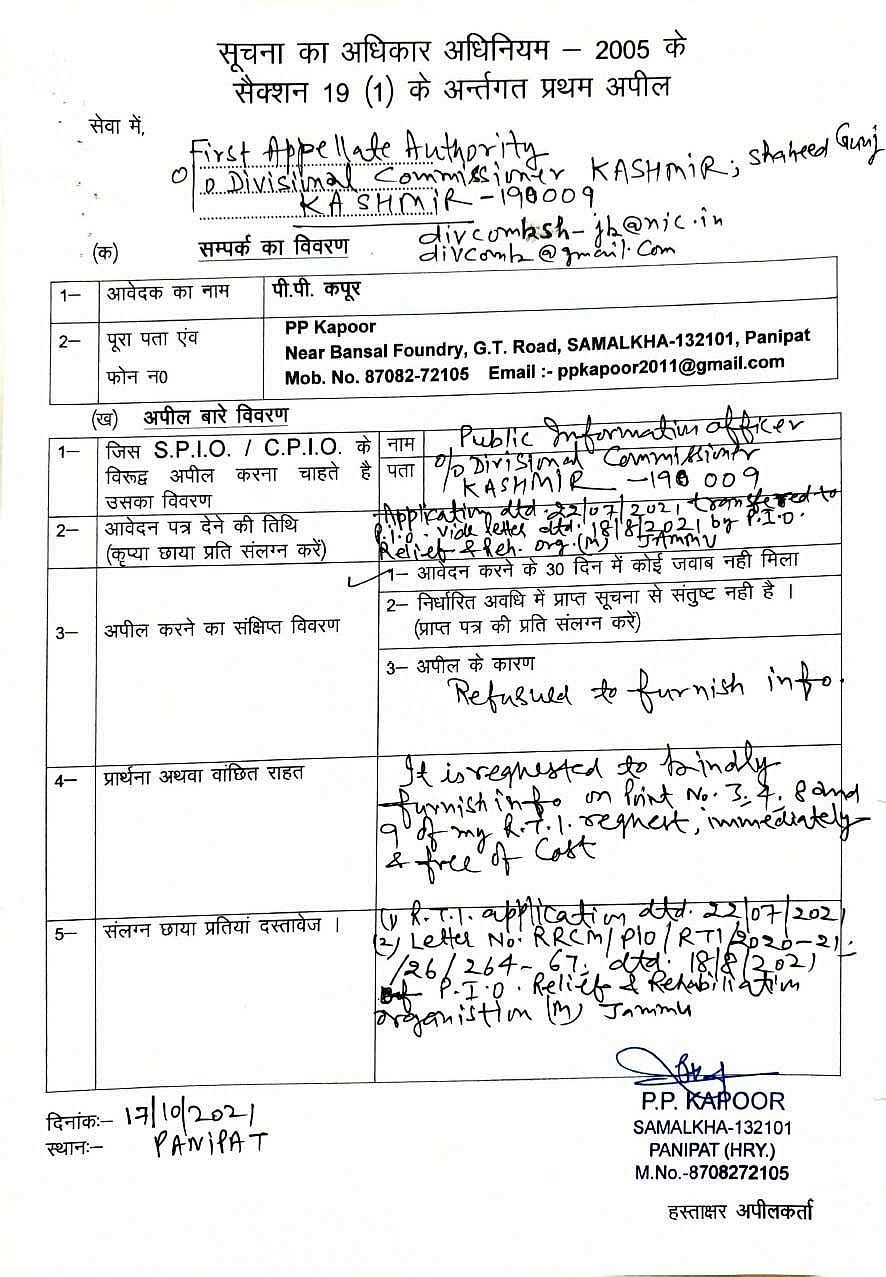 सूचना का अधिकार अधिनियम – 2005 के
सैक्शन 19 (1) के अर्न्तगत प्रथम अपील
सेवा में,
First Appellate Authority
O/o Divisional Commissioner KASHMIR, Shaheed Gunj
KASHMIR -190009
divcomksh-jk@nic.in
(क) सम्पर्क का विवरण
divcomk@gmail.com
1– आवेदक का नाम पी.पी. कपूर
2– पूरा पता एंव
फोन न0
PP Kapoor
Near Bansal Foundry, G.T. Road, SAMALKHA-132101, Panipat
Mob. No. 87082-72105 Email :- ppkapoor2011@gmail.com
(ख) अपील बारे विवरण
1– जिस S.P.I.O. / C.P.I.O. के
विरूद्व अपील करना चाहते है
उसका विवरण
नाम Public Information officer
पता O/o Divisional Commissioner
KASHMIR -190009
2– आवेदन पत्र देने की तिथि
(कृप्या छाया प्रति संलग्न करें)
Application dtd. 22/07/2021 transferred to
P.I.O. vide letter dtd. 18/8/2021 by P.I.O.
Relief & Reh. org. (M) JAMMU
3– अपील करने का संक्षिप्त विवरण
1– आवेदन करने के 30 दिन में कोई जवाब नही मिला
2– निर्धारित अवधि में प्राप्त सूचना से संतुष्ट नही है ।
(प्राप्त पत्र की प्रति संलग्न करें)
3– अपील के कारण
Refusued to furnish info.
4– प्रार्थना अथवा वांछित राहत
It is requested to kindly
furnish info on Point No. 3, 4, 8 and
9 of my R.T.I. request, immediately
& free of Cost
5– संलग्न छाया प्रतियां दस्तावेज ।
(1) R.T.I. application dtd. 22/07/2021
(2) Letter No. RRCM/PIO/RTI/2020-21
/26/264-67. dtd. 18/8/2021
of P.I.O. Relief & Rehabiliation
organistion (M) Jammu
दिनांकः– 17/10/2021
स्थानः– PANIPAT
P.P. KAPOOR
SAMALKHA-132101
PANIPAT (HRY.)
M.No.-8708272105
हस्ताक्षर अपीलकर्ता